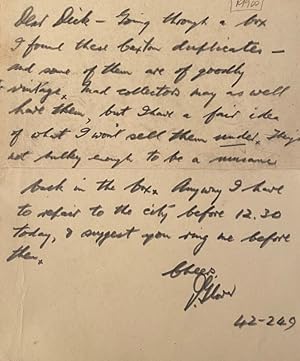 Dear Dick – Going through a box
I found these Caxton duplicates –
and some of them are of goodly
vintage. Mad collectors may as well
have them, but I have a fair idea
of what I won't sell them under. They
not bulky enough to be a nuisance
back in the box. Anyway I have
to repair to the city before 12.30
today, & suggest you ring me before
then.
Cheers
42-249